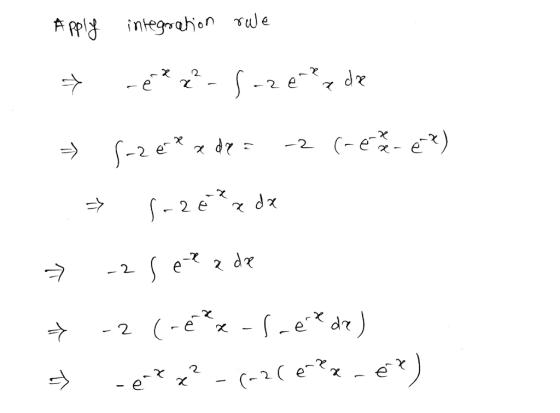 Apply integration rule
⇒ -e^-x x^2 - ∫ -2 e^-x x dx
⇒ ∫-2 e^-x x dx = -2 (-e^-x x - e^-x)
⇒ ∫-2 e^-x x dx
⇒ -2 ∫ e^-x x dx
⇒ -2 (-e^-x x - ∫-e^-x dx)
⇒ -e^-x x^2 - (-2( e^-x x - e^-x)